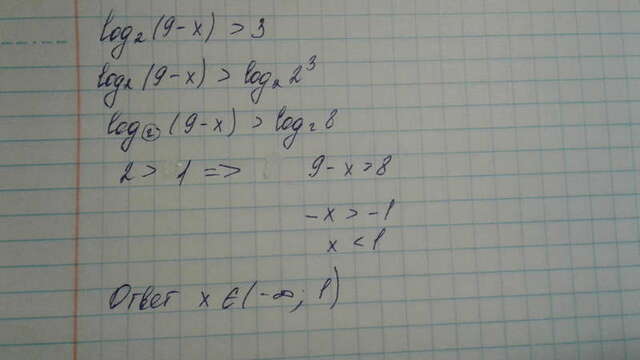 log₂(9-x) > 3
log₂(9-x) > log₂ 2³
log₂(9-x) > log₂ 8
2 > 1 => 9-x > 8
-x > -1
x < 1
Ответ x ∈ (-∞; 1)